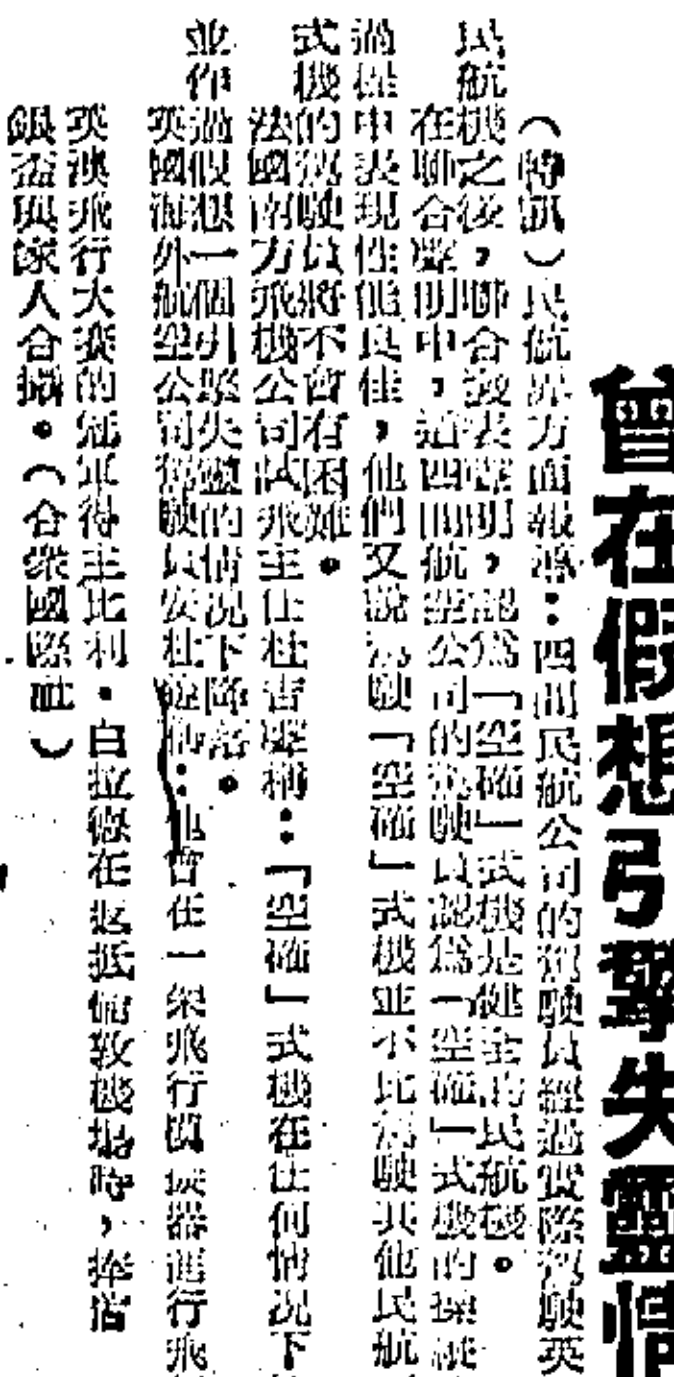 曾在假想引擎失靈情
(特訊)民航界方面報導:四間民航公司的駕駛員經過實際駕駛英
民航機之後,聯合發表聲明,認爲「空確」式機是健全的民航機。
在聯合聲明中,這四間航空公司的駕駛員認爲「空確」式機的操縱
過程中表現性能良佳,他們又說駕駛「空確」式機並不比駕駛其他民航
式機的駕駛員將不會有困難。
法國南方飛機公司試飛主任杜吉聲利:「空確」式機在任何情况下
並作過假想一個引擎失靈的情况下降落。
英國海外航空公司駕駛員安杜:他曾在一架飛行器進行飛
英澳飛行大賽的冠軍得主比利·白拉德在返抵倫敦機場時,捧着
銀盃與家人合攝。(合衆國際社)